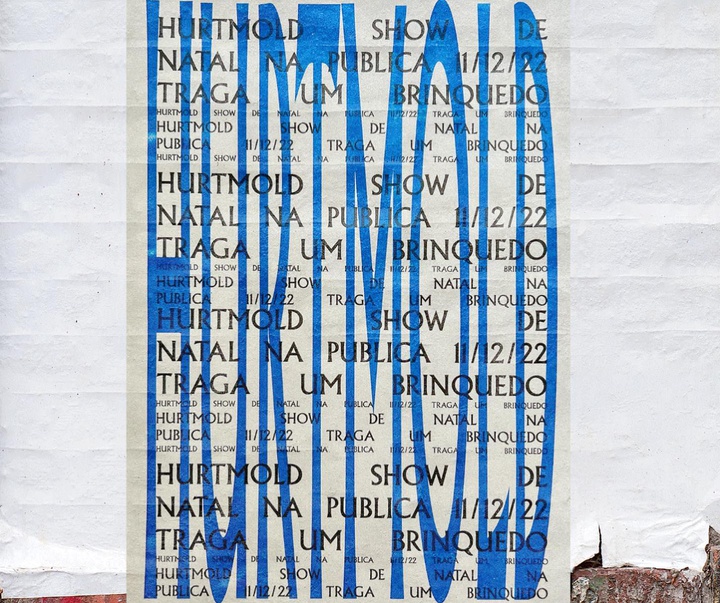 HURTMOLD
HURTMOLD SHOW DE
NATAL NA PUBLICA 11/12/22
TRAGA UM BRINQUEDO
HURTMOLD SHOW DE NATAL NA PUBLICA 11/12/22 TRAGA UM BRINQUEDO
HURTMOLD SHOW DE NATAL NA
PUBLICA 11/12/22 TRAGA UM BRINQUEDO
HURTMOLD SHOW DE NATAL NA PUBLICA 11/12/22 TRAGA UM BRINQUEDO
HURTMOLD SHOW DE
NATAL NA PUBLICA 11/12/22
TRAGA UM BRINQUEDO
HURTMOLD SHOW DE NATAL NA PUBLICA 11/12/22 TRAGA UM BRINQUEDO
HURTMOLD SHOW DE NATAL NA
PUBLICA 11/12/22 TRAGA UM BRINQUEDO
HURTMOLD SHOW DE
NATAL NA PUBLICA 11/12/22
TRAGA UM BRINQUEDO
HURTMOLD SHOW DE NATAL NA PUBLICA 11/12/22 TRAGA UM BRINQUEDO
HURTMOLD SHOW DE NATAL NA
PUBLICA 11/12/22 TRAGA UM BRINQUEDO
HURTMOLD SHOW DE NATAL NA PUBLICA 11/12/22 TRAGA UM BRINQUEDO
HURTMOLD SHOW DE
NATAL NA PUBLICA 11/12/22
TRAGA UM BRINQUEDO
HURTMOLD SHOW DE NATAL NA PUBLICA 11/12/22 TRAGA UM BRINQUEDO
HURTMOLD SHOW DE NATAL NA
PUBLICA 11/12/22 TRAGA UM BRINQUEDO